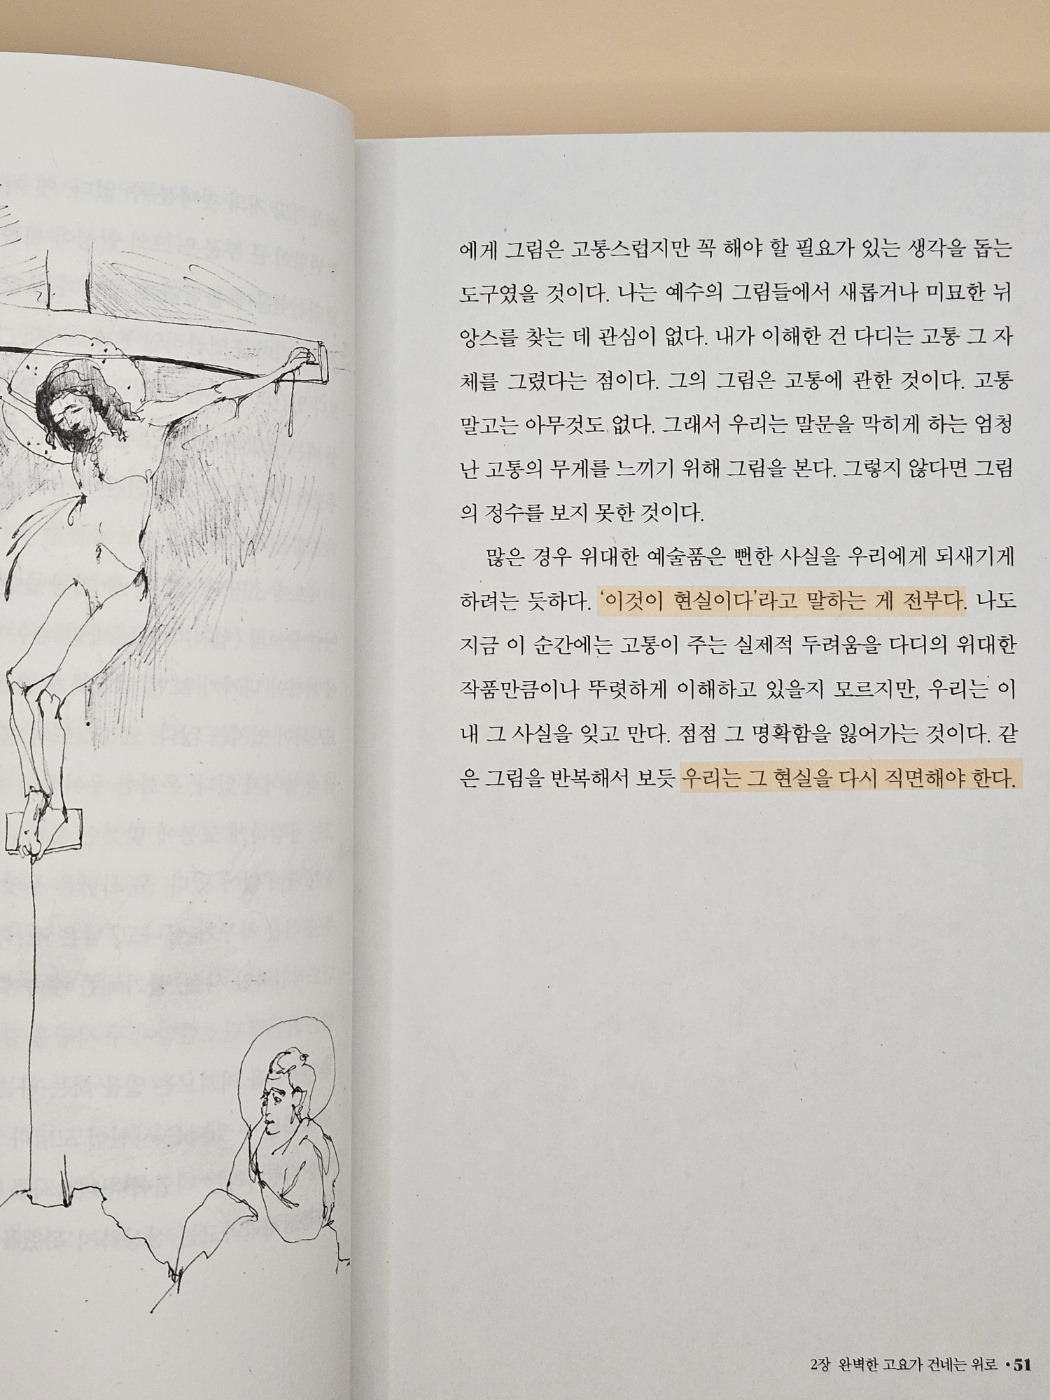 에게 그림은 고통스럽지만 꼭 해야 할 필요가 있는 생각을 돕는
도구였을 것이다. 나는 예수의 그림들에서 새롭거나 미묘한 뉘
앙스를 찾는 데 관심이 없다. 내가 이해한 건 다디는 고통 그 자
체를 그렸다는 점이다. 그의 그림은 고통에 관한 것이다. 고통
말고는 아무것도 없다. 그래서 우리는 말문을 막히게 하는 엄청
난 고통의 무게를 느끼기 위해 그림을 본다. 그렇지 않다면 그림
의 정수를 보지 못한 것이다.
많은 경우 위대한 예술품은 뻔한 사실을 우리에게 되새기게
하려는 듯하다. ‘이것이 현실이다’라고 말하는 게 전부다. 나도
지금 이 순간에는 고통이 주는 실제적 두려움을 다디의 위대한
작품만큼이나 뚜렷하게 이해하고 있을지 모르지만, 우리는 이
내 그 사실을 잊고 만다. 점점 그 명확함을 잃어가는 것이다. 같
은 그림을 반복해서 보듯 우리는 그 현실을 다시 직면해야 한다.
2장 완벽한 고요가 건네는 위로 • 51